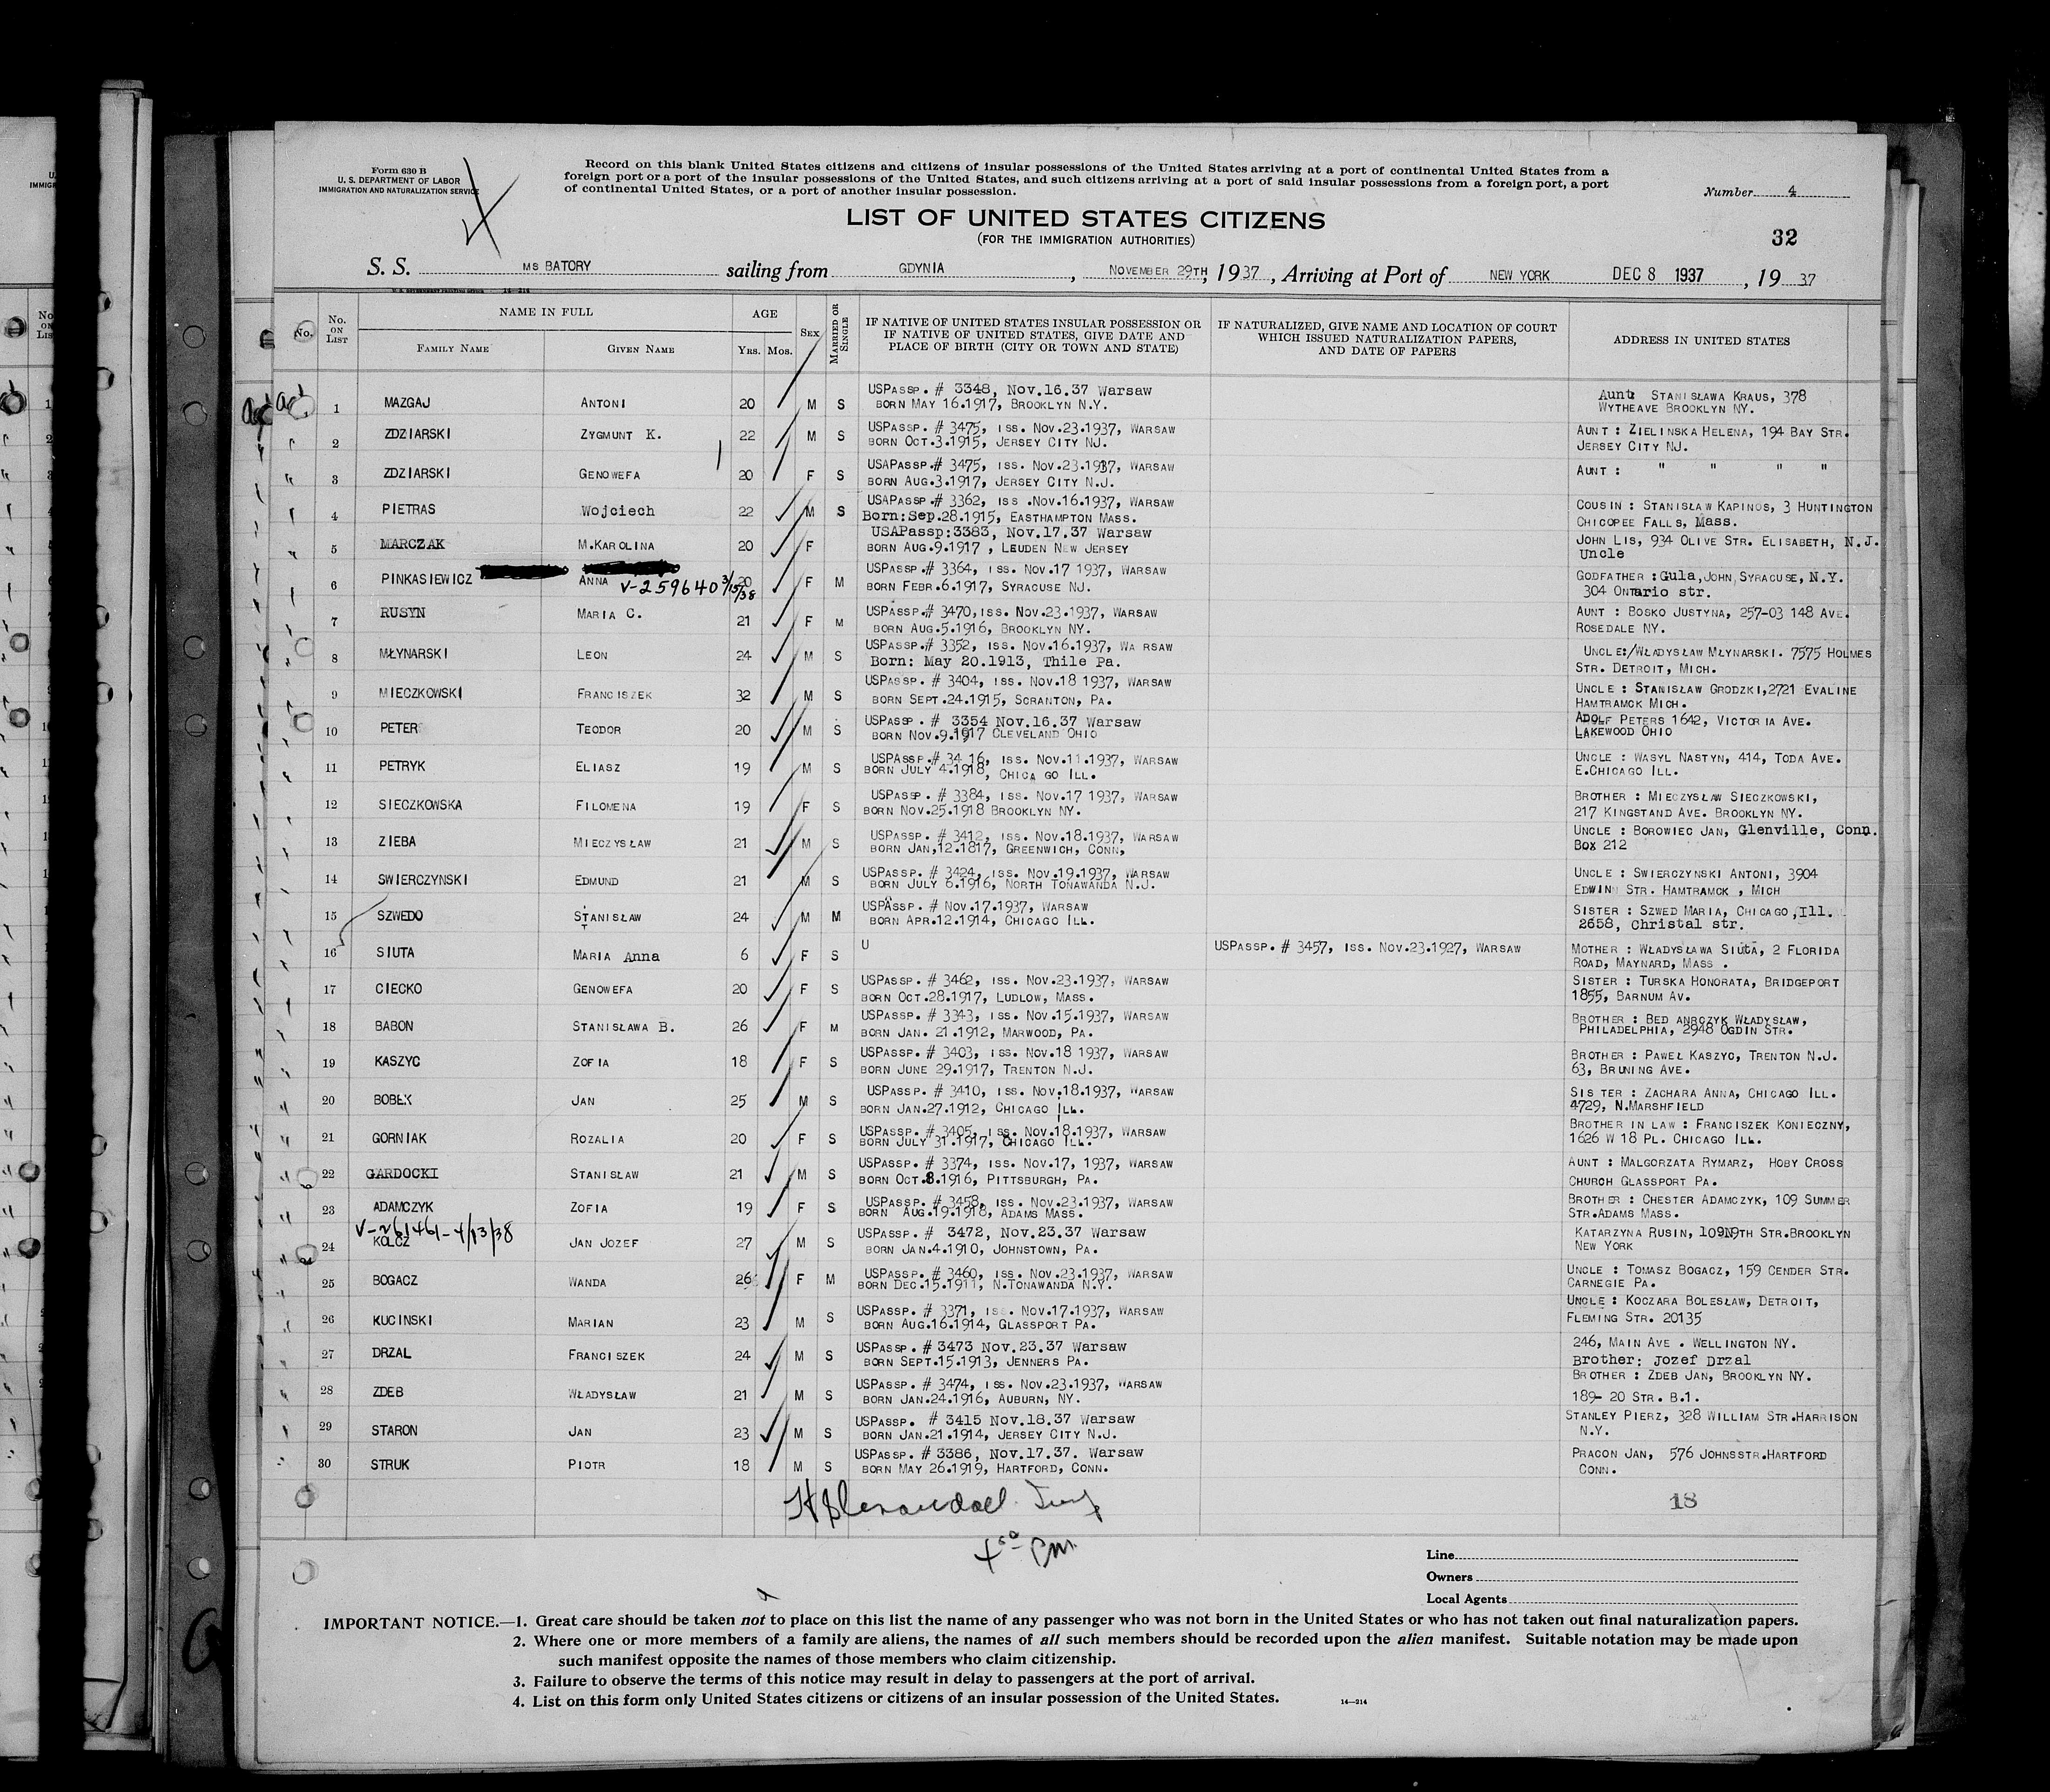 Form 630 B
U. S. DEPARTMENT OF LABOR
IMMIGRATION AND NATURALIZATION SERVICE
Record on this blank United States citizens and citizens of insular possessions of the United States arriving at a port of continental United States from a
foreign port or a port of the insular possessions of the United States, and such citizens arriving at a port of said insular possessions from a foreign port, a port
of continental United States, or a port of another insular possession.
Number 4
LIST OF UNITED STATES CITIZENS
(FOR THE IMMIGRATION AUTHORITIES)
32
S. S. MS BATORY sailing from GDYNIA, NOVEMBER 29TH, 1937, Arriving at Port of NEW YORK DEC 8 1937, 19 37
No. No. ON LIST NAME IN FULL FAMILY NAME GIVEN NAME AGE YRS. MOS. SEX MARRIED OR SINGLE
IF NATIVE OF UNITED STATES INSULAR POSSESSION OR
IF NATIVE OF UNITED STATES, GIVE DATE AND
PLACE OF BIRTH (CITY OR TOWN AND STATE)
IF NATURALIZED, GIVE NAME AND LOCATION OF COURT
WHICH ISSUED NATURALIZATION PAPERS,
AND DATE OF PAPERS
ADDRESS IN UNITED STATES
1 MAZGAJ ANTONI 20 M S USPASSP. # 3348, Nov.16.37 Warsaw Aunt: STANISŁAWA KRAUS, 378
BORN MAY 16.1917, BROOKLYN N.Y. WYTHEAVE BROOKLYN NY.
2 ZDZIARSKI ZYGMUNT K. 22 M S USPASSP. # 3475, ISS. NOV.23.1937, WARSAW AUNT : ZIELINSKA HELENA, 194 BAY STR.
BORN OCT.3.1915, JERSEY CITY NJ. JERSEY CITY NJ.
3 ZDZIARSKI GENOWEFA 20 F S USAPASSP.# 3475, ISS. NOV.23.1937, WARSAW AUNT : " " " "
BORN AUG.3.1917, JERSEY CITY N.J.
4 PIETRAS Wojciech 22 M S USAPASSP.# 3362, ISS .NOV.16.1937, WARSAW COUSIN : STANISŁAW KAPINOS, 3 HUNTINGTON
Born:Sep.28.1915, EASTHAMPTON MASS. CHICOPEE FALLS, Mass.
5 MARCZAK M.KAROLINA 20 F USAPassp:3383, Nov.17.37 Warsaw JOHN LIS, 934 OLIVE STR. ELISABETH, N.J.
BORN AUG.9.1917 , LEUDEN NEW JERSEY Uncle
6 PINKASIEWICZ ANNA V-259640 3/15/38 20 F M USPASSP.# 3364, ISS. NOV.17 1937, WARSAW GODFATHER :Gula, JOHN, SYRACUSE, N.Y.
BORN FEBR.6.1917, SYRACUSE NJ. 304 Ontario str.
7 RUSYN MARIA C. 21 F M USPASSP.# 3470,ISS. NOV.23.1937, WARSAW AUNT : BOSKO JUSTYNA, 257-03 148 AVE.
BORN AUG.5.1916, BROOKLYN NY. ROSEDALE NY.
8 MŁYNARSKI LEON 24 M S USPASSP.# 3352, ISS. NOV.16.1937, WA RSAW UNCLE:/WŁADYSŁAW MŁYNARSKI. 7575 HOLMES
Born: May 20.1913, Thile Pa. STR. DETROIT, MICH.
9 MIECZKOWSKI FRANCISZEK 32 M S USPASSP. # 3404, ISS. NOV.18 1937, WARSAW UNCLE : STANISŁAW GRODZKI,2721 EVALINE
BORN SEPT.24.1915, SCRANTON, PA. HAMTRAMCK MICH.
10 PETER TEODOR 20 M S USPASSP. # 3354 Nov.16.37 Warsaw ADOLF PETERS 1642, VICTORIA AVE.
BORN NOV.9.1917 CLEVELAND OHIO LAKEWOOD OHIO
11 PETRYK ELIASZ 19 M S USPASSP.# 34 16, ISS. NOV.11.1937, WARSAW UNCLE : WASYL NASTYN, 414, TODA AVE.
BORN JULY 4.1918, CHICA GO ILL. E.CHICAGO ILL.
12 SIECZKOWSKA FILOMENA 19 F S USPASSP. # 3384, ISS. NOV.17 1937, WARSAW BROTHER : MIECZYSŁAW SIECZKOWSKI,
BORN NOV.25.1918 BROOKLYN NY. 217 KINGSTAND AVE. BROOKLYN NY.
13 ZIEBA MIECZYSŁAW 21 M S USPASSP. # 3412, ISS. NOV.18.1937, WARSAW UNCLE : BOROWIEC JAN, Glenville, Conn.
BORN JAN,12.1817, GREENWICH, CONN, Box 212
14 SWIERCZYNSKI EDMUND 21 M S USPASSP. # 3424, ISS. NOV.19.1937, WARSAW UNCLE : SWIERCZYNSKI ANTONI, 3904
BORN JULY 6.1916, NORTH TONAWANDA N.J. EDWINN STR. HAMTRAMCK , MICH
15 SZWEDO STANISŁAW 24 M M USPASSP. # NOV.17.1937, WARSAW SISTER : SZWED MARIA, CHICAGO,Ill.
BORN APR.12.1914, CHICAGO ILL. 2658, Christal str.
16 SIUTA MARIA Anna 6 F S U USPASSP. # 3457, ISS. NOV.23.1927, WARSAW MOTHER : WŁADYSŁAWA SIUTA, 2 FLORIDA
ROAD, MAYNARD, MASS .
17 CIECKO GENOWEFA 20 F S USPASSP. # 3462, ISS. NOV.23.1937, WARSAW SISTER : TURSKA HONORATA, BRIDGEPORT
BORN OCT.28.1917, LUDLOW, MASS. 1855, BARNUM AV.
18 BABON STANISŁAWA B. 26 F M USPASSP. # 3343, ISS. NOV.15.1937, WARSAW BROTHER : BED ANRCZYK WŁADYSŁAW,
BORN JAN. 21.1912, MARWOOD, PA. PHILADELPHIA, 2948 OGDIN STR.
19 KASZYC ZOFIA 18 F S USPASSP. # 3403, ISS. NOV.18 1937, WARSAW BROTHER : PAWEŁ KASZYC, TRENTON N.J.
BORN JUNE 29.1917, TRENTON N.J. 63, BRUNING AVE.
20 BOBEK JAN 25 M S USPASSP. # 3410, ISS. NOV.18.1937, WARSAW SIS TER : ZACHARA ANNA, CHICAGO ILL.
BORN JAN.27.1912, CHICAGO ILL. 4729, N.MARSHFIELD
21 GORNIAK ROZALIA 20 F S USPASSP. # 3405, ISS. NOV.18.1937, WARSAW BROTHER IN LAW : FRANCISZEK KONIECZNY,
BORN JULY 31.1917, CHICAGO ILL. 1626 W 18 PL. CHICAGO ILL.
22 GARDOCKI STANISŁAW 21 M S USPASSP. # 3374, ISS. NOV.17, 1937, WARSAW AUNT : MALGORZATA RYMARZ, HOBY CROSS
BORN OCT.8.1916, PITTSBURGH, PA. CHURCH GLASSPORT PA.
23 ADAMCZYK ZOFIA 19 F S USPASSP. # 3458, ISS. NOV.23.1937, WARSAW BROTHER : CHESTER ADAMCZYK, 109 SUMMER
BORN AUG.19.1918, ADAMS MASS. STR.ADAMS MASS.
V-261461-4/13/38
24 KOLCZ JAN JOZEF 27 M S USPASSP. # 3472, Nov.23.37 Warsaw KATARZYNA RUSIN, 109N9TH STR.BROOKLYN
BORN JAN.4.1910, JOHNSTOWN, PA. NEW YORK
25 BOGACZ WANDA 26 F M USPASSP. # 3460, ISS. NOV.23.1937, WARSAW UNCLE : TOMASZ BOGACZ, 159 CENDER STR.
BORN DEC.15.1911, N.TONAWANDA N.Y. CARNEGIE PA.
26 KUCINSKI MARIAN 23 M S USPASSP. # 3371, ISS. NOV.17.1937, WARSAW UNCLE : KOCZARA BOLESŁAW, DETROIT,
BORN AUG.16.1914, GLASSPORT PA. FLEMING STR. 20135
27 DRZAL FRANCISZEK 24 M S USPASSP. # 3473 Nov.23.37 Warsaw 246, MAIN AVE . WELLINGTON NY.
BORN SEPT.15.1913, JENNERS PA. Brother: Jozef Drzal
28 ZDEB WŁADYSŁAW 21 M S USPASSP. # 3474, ISS. NOV.23.1937, WARSAW BROTHER : ZDEB JAN, BROOKLYN NY.
BORN JAN.24.1916, AUBURN, NY. 189- 20 STR. B.1.
29 STARON JAN 23 M S USPASSP. # 3415 Nov.18.37 Warsaw STANLEY PIERZ, 328 WILLIAM STR.HARRISON
BORN JAN.21.1914, JERSEY CITY N.J. N.Y.
30 STRUK PIOTR 18 M S USPASSP. # 3386, Nov.17.37. Warsaw PRACON JAN, 576 JOHNSSTR.HARTFORD
BORN MAY 26.1919, HARTFORD, CONN. CONN.
18
Pm
Line
Owners
Local Agents
IMPORTANT NOTICE.—1. Great care should be taken not to place on this list the name of any passenger who was not born in the United States or who has not taken out final naturalization papers.
2. Where one or more members of a family are aliens, the names of all such members should be recorded upon the alien manifest. Suitable notation may be made upon
such manifest opposite the names of those members who claim citizenship.
3. Failure to observe the terms of this notice may result in delay to passengers at the port of arrival.
4. List on this form only United States citizens or citizens of an insular possession of the United States.
14—214